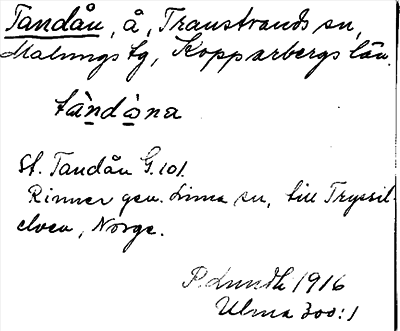 Tandån, å, Transtrands sn,
Malungs tg, Kopparbergs län.
tàndȧ̀na
St. Tandån G. 101.
Rinner gen. Lima sn, till Tryssil-
elven, Norge.
1916
Ulma 300:1